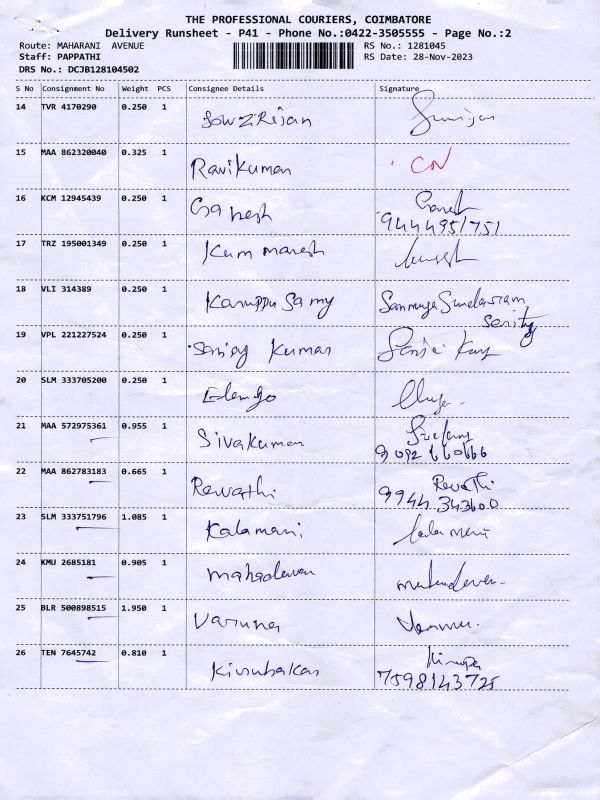 THE PROFESSIONAL COURIERS, COIMBATORE
Delivery Runsheet - P41 - Phone No.:0422-3505555 - Page No.:2
Route: MAHARANI AVENUE RS No.: 1281045
Staff: PAPPATHI RS Date: 28-Nov-2023
DRS No.: DCJB128104502
S No Consignment No Weight PCS Consignee Details Signature
14 TVR 4170290 0.250 1
15 MAA 862320040 0.325 1 Ravikumar CN
16 KCM 12945439 0.250 1 Ganesh Ganesh
9444951751
17 TRZ 195001349 0.250 1 Kummaresh
18 VLI 314389 0.250 1 Karuppu Samy Sanmuga Sundaram
19 VPL 221227524 0.250 1 Sanjay Kumar
20 SLM 333705200 0.250 1 Elango
21 MAA 572975361 0.955 1 Sivakumar
9092660666
22 MAA 862783183 0.665 1 Revathi Revathi
9944343600
23 SLM 333751796 1.085 1 Kalamani Kalamani
24 KMU 2685181 0.905 1 Mahadevan
25 BLR 500898515 1.950 1 Varuna
26 TEN 7645742 0.810 1 Kirubakar
7598143725